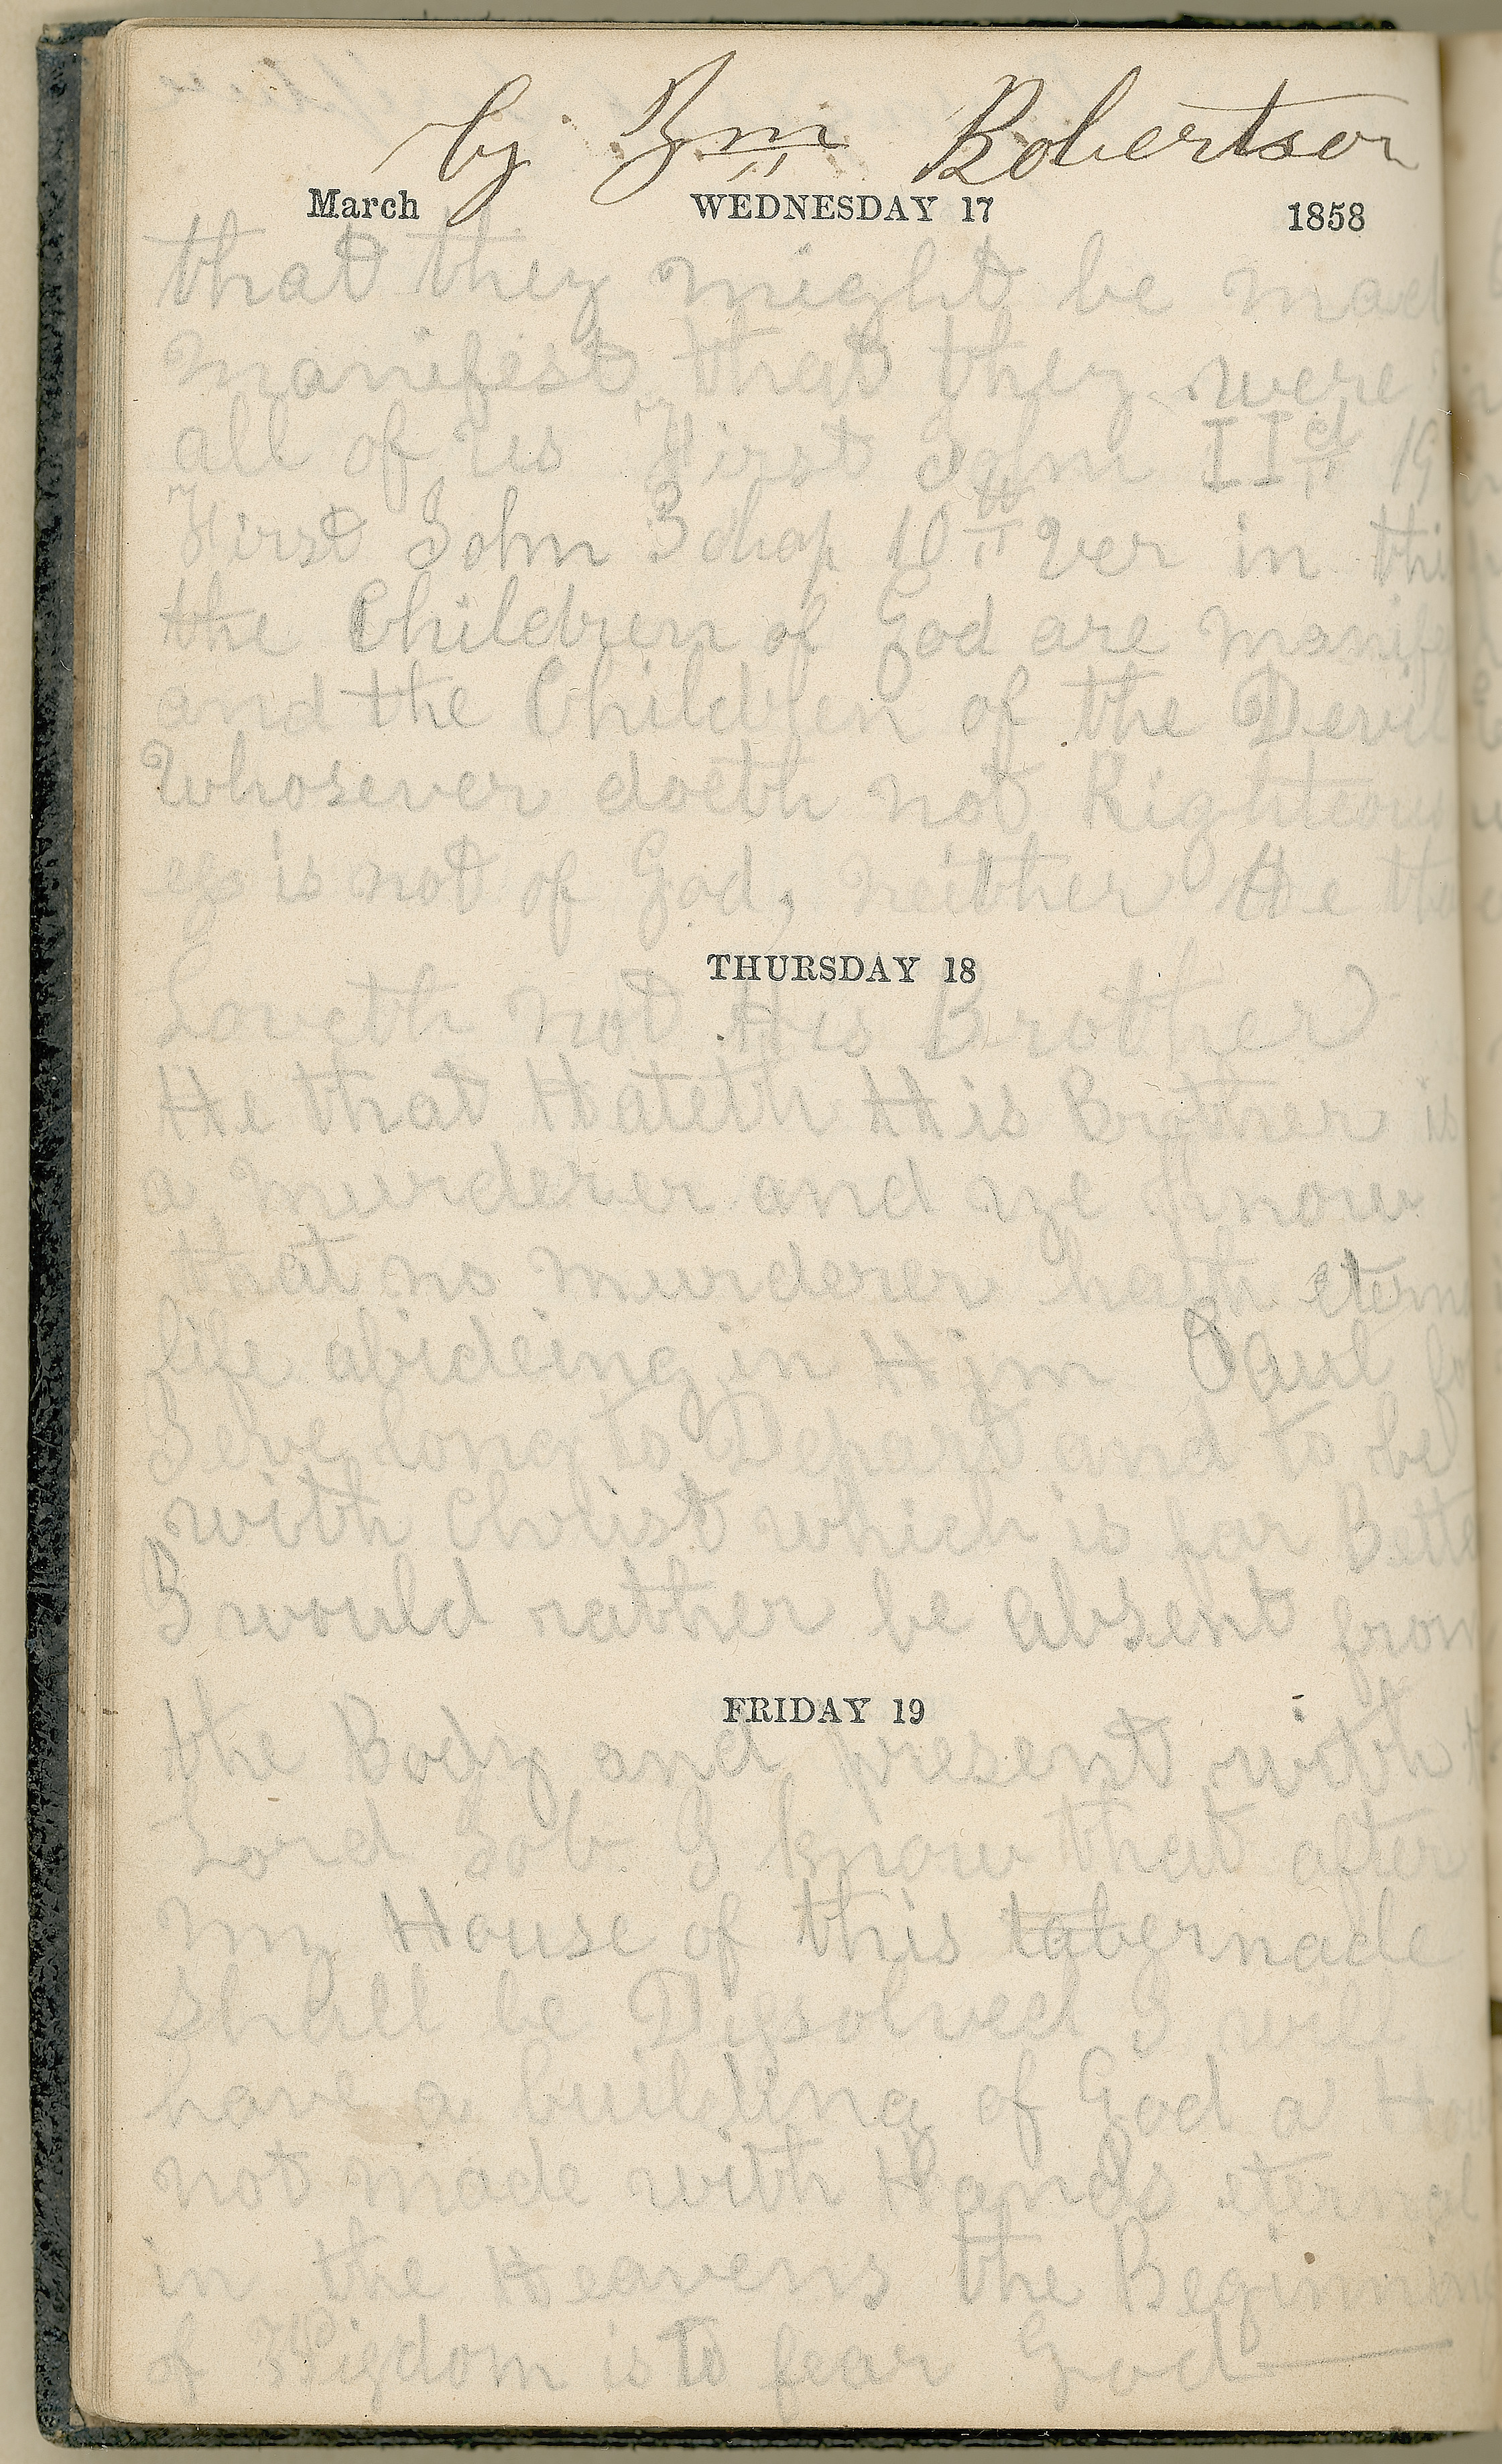 by Wm Robertson
March WEDNESDAY 17 1858
that they might be mad
manifest that they were
all of us First John IId 19
First John 3 chap 10th ver in thi
the Children of God are manife
and the Children of the Devil
Whosever doeth not Righteous
is not of God, neither He tha
THURSDAY 18
Loveth not His Brother
He that Hateth His Brother is
a murderer and ye know
that no murderer hath etern
life abideing in Him Paul
long to Depart and to be
with Christ which is far Bette
I would rather be absent from
FRIDAY 19
the Body and present with
Lord Job I know that after
my House of this tabernacle
shall be Disolved I will
have a building of God a Hou
not made with Hands eternal
in the Heavens the Beginnin
of Wisdom is to fear God